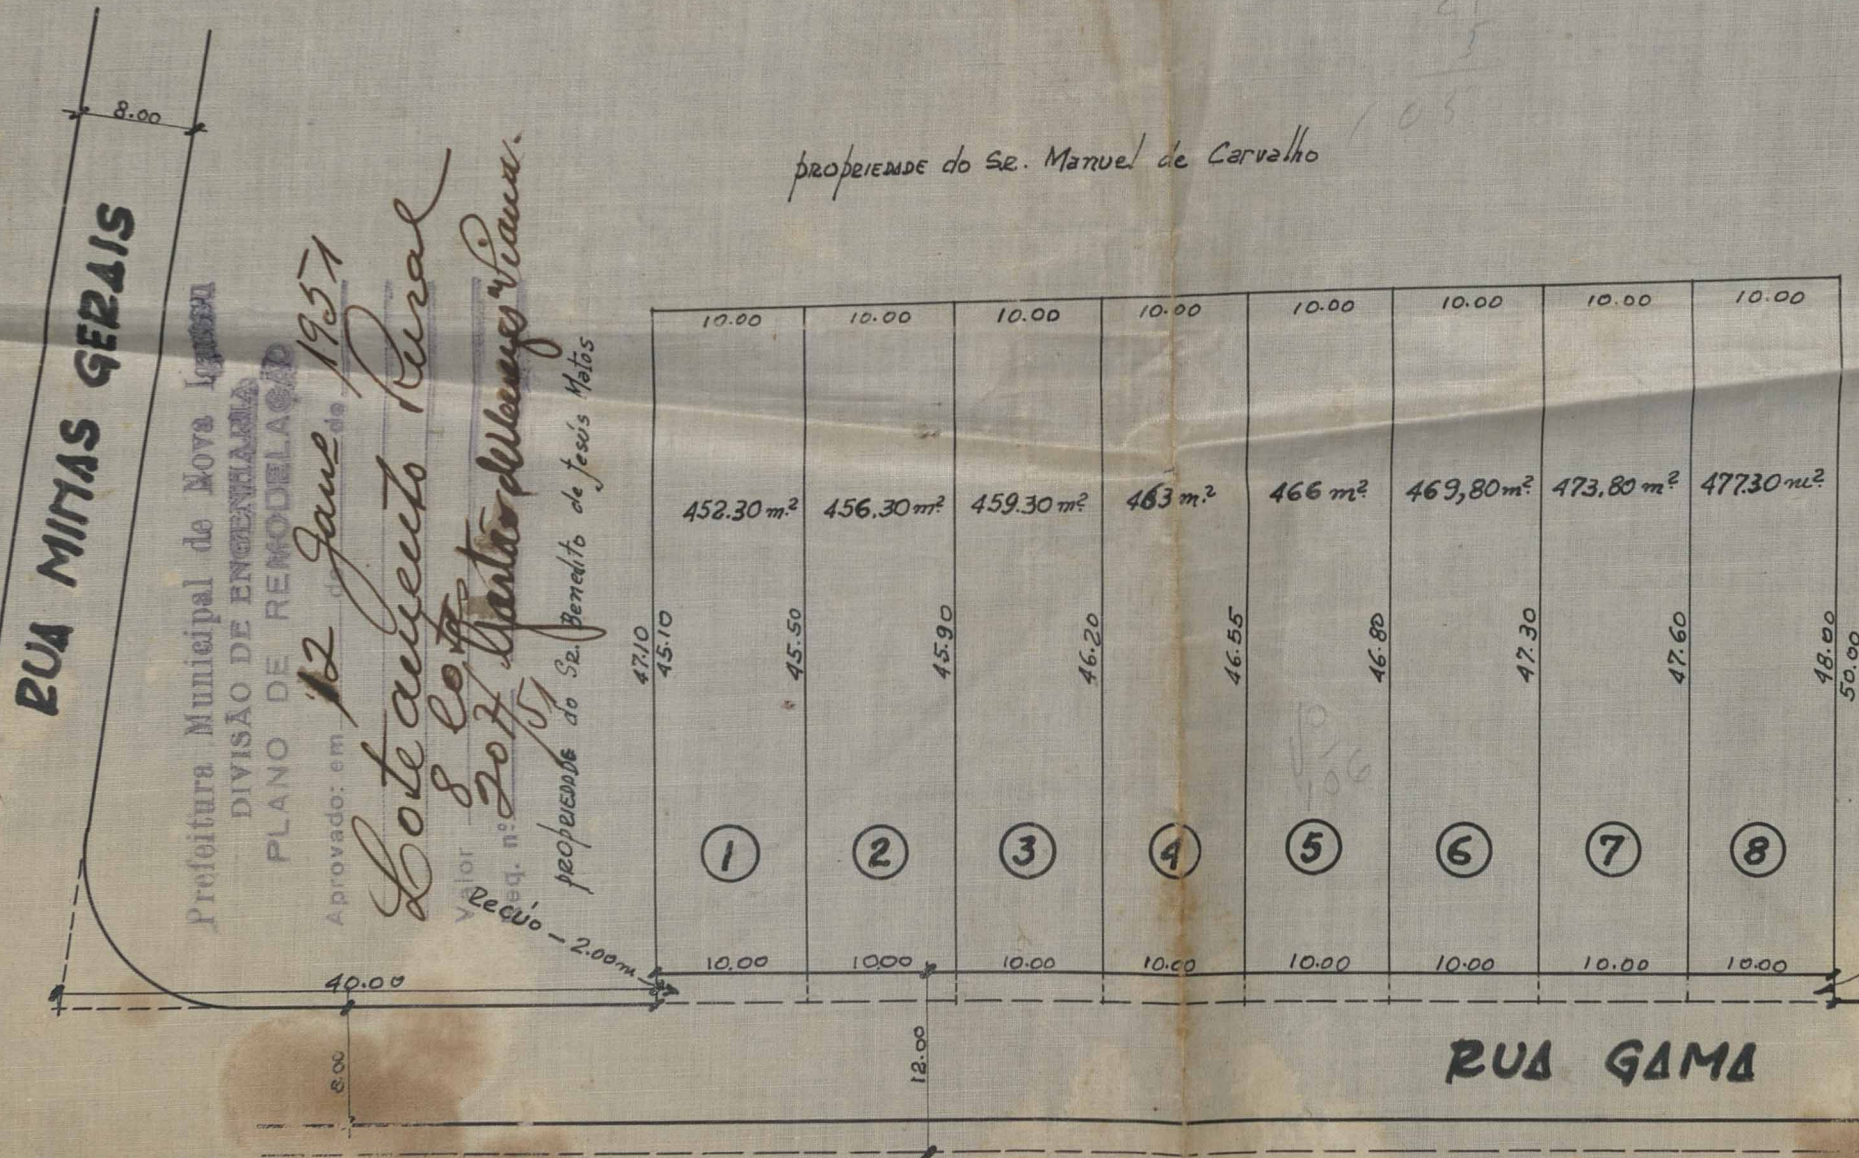 8.00
RUA MINAS GERAIS
Prefeitura Municipal de Nova Iguassú
DIVISÃO DE ENGENHARIA
PLANO DE REMODELAÇÃO
Aprovado: em 12 de 1951
Loteamento Rural
Valor 8 Lotes
Req. nº 207/51
propriedade do Sr. Benedito de Jesús Matos
propriedade do Sr. Manuel de Carvalho
10.00 10.00 10.00 10.00 10.00 10.00 10.00 10.00
452.30 m² 456.30 m² 459.30 m² 463 m² 466 m² 469,80 m² 473,80 m² 477.30 m²
47.10 45.10 45.50 45.90 46.20 46.55 46.80 47.30 47.60 48.00 50.00
1 2 3 4 5 6 7 8
Recúo - 2.00m
10.00 10.00 10.00 10.00 10.00 10.00 10.00 10.00
40.00
8.00
12.00
RUA GAMA